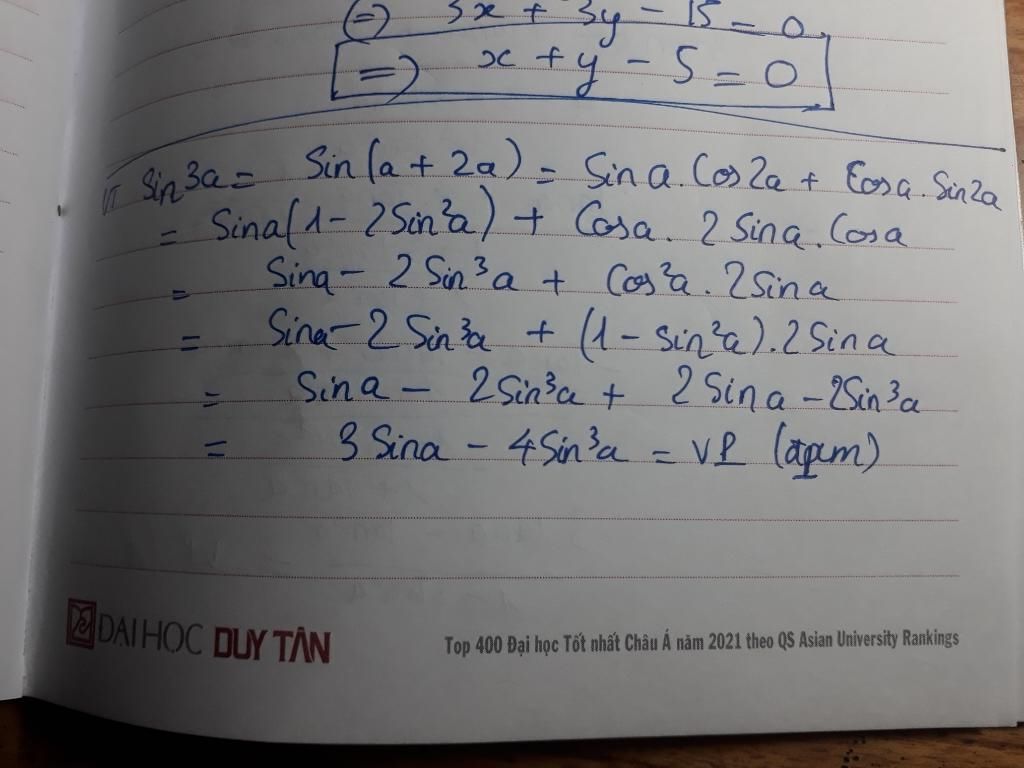 (=) 3x + 3y - 15 = 0
=) x + y - 5 = 0
VT Sin3a = Sin(a + 2a) = Sina.Cos2a + Cosa.Sin2a
= Sina(1 - 2Sin²a) + Cosa. 2Sina.Cosa
= Sina - 2Sin³a + Cos²a. 2Sina
= Sina - 2Sin³a + (1 - Sin²a).2Sina
= Sina - 2Sin³a + 2Sina - 2Sin³a
= 3Sina - 4Sin³a = VP (đpcm)
ĐẠI HỌC DUY TÂN
Top 400 Đại học Tốt nhất Châu Á năm 2021 theo QS Asian University Rankings